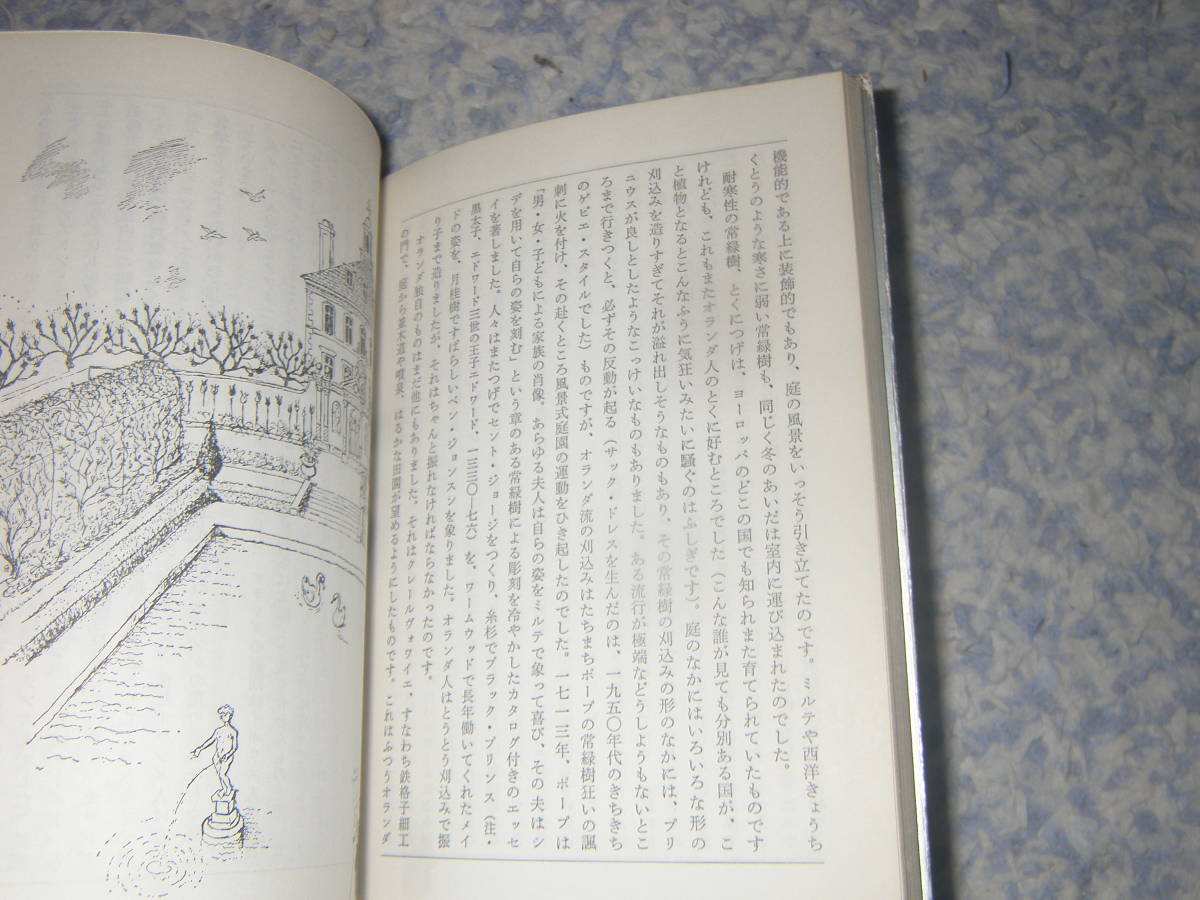 機能的である上に装飾的でもあり、庭の風景をいっそう引き立てたのです。ミルテや西洋きょうち
くとうのような寒さに弱い常緑樹も、同じく冬のあいだは室内に運び込まれたのでした。
耐寒性の常緑樹、とくにつげは、ヨーロッパのどこの国でも知られまた育てられていたものです
けれども、これもまたオランダ人のとくに好むところでした（こんな誰が見ても分別ある国が、こ
と植物となるとこんなふうに気狂いみたいに騒ぐのはふしぎです）。庭のなかにはいろいろな形の
刈込みを造りすぎてそれが溢れ出しそうなものもあり、その常緑樹の刈込みの形のなかには、プリ
ニウスが良しとしたようなこっけいなものもありました。ある流行が極端などうしようもないとこ
ろまで行きつくと、必ずその反動が起る（サック・ドレスを生んだのは、一九五〇年代のきちきち
のゲピエ・スタイルでした）ものですが、オランダ流の刈込みはたちまちポープの常緑樹狂いの諷
刺に火を付け、その赴くところ風景式庭園の運動をひき起したのでした。一七一三年、ポープは
「男・女・子どもによる家族の肖像、あらゆる夫人は自らの姿をミルテで象って喜び、その夫はシ
デを用いて自らの姿を刻む」という章のある常緑樹による彫刻を冷やかしたカタログ付きのエッセ
イを著しました。人々はまたつげでセント・ジョージをつくり、糸杉でブラック・プリンス（注・
黒太子、エドワード三世の王子エドワード、一三三〇―七六）を、ワームウッドで長年働いてくれたメイ
ドの姿を、月桂樹ですばらしいベン・ジョンスンを象りました。オランダ人はとうとう刈込みで振
り子まで造りましたが、それはちゃんと振れなければならなかったのです。
オランダ独自のものはまだ他にもありました。それはクレールヴォワイエ、すなわち鉄格子細工
の門で、庭から並木道や噴泉、はるかな田園が望めるようにしたものです。これはふつうオランダ